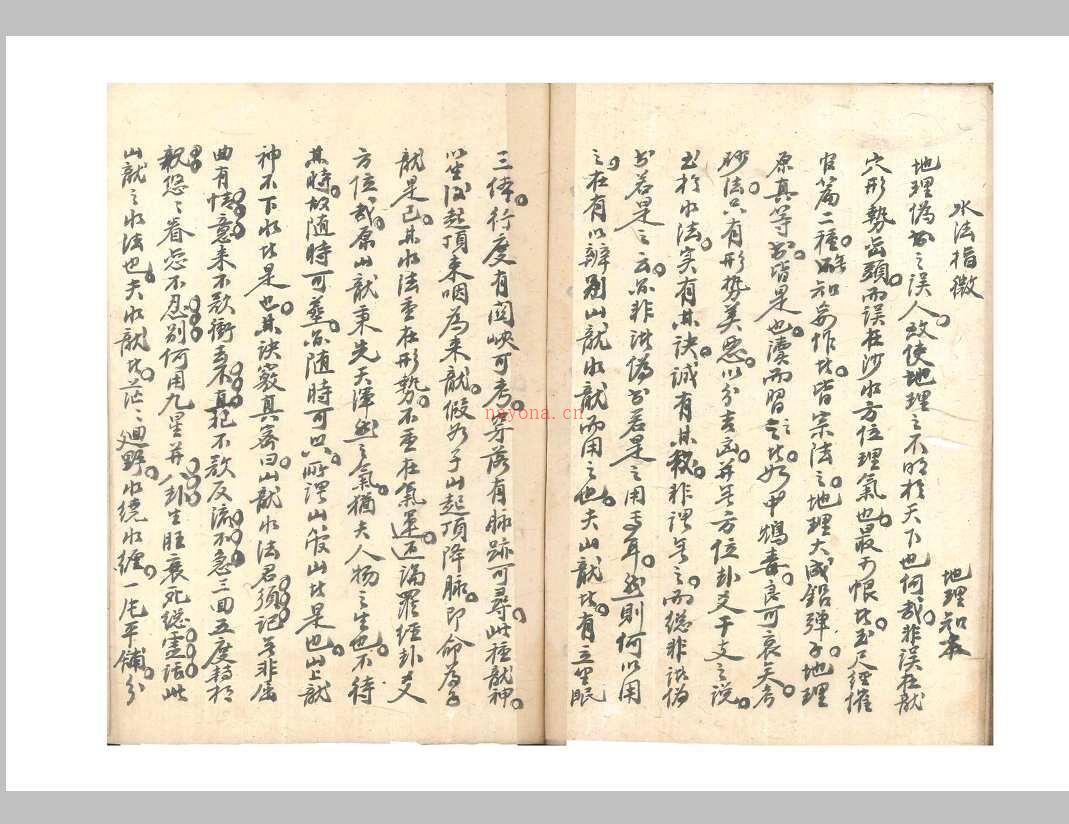 水法指微
地理知本
地理偽書之誤人。致使地理之不明於天下也。何哉。非誤在龍
穴形勢巒頭。而誤在沙水方位理氣也。最可恨者。玉尺經催
官篇二種。略知妄作者。皆宗法之。地理大成鉛彈子。地理
原真等書皆是也。讀而習之者。如甲鴆毒。良可哀矣。考
砂法。只有形勢美惡。以分吉凶。并無方位卦爻干支之說。
至於水法。实有其訣。誠有其
書若是之云。亦非諸偽書若是之用耳。然則何以用
之。在有以辨別山龍水龍而用之也。夫山龍者。有立坐眠
三体。行度有関峽可考。等落有脉跡可尋。此種龍神。
以坐後起頂束咽為来龍。假如子山起頂降脉。即命為子
龍是已。其水法重在形勢。不重在氣運。迥論羅經卦爻
方位哉。原山龍秉先天渾然之氣。猶夫人物之生也。不待
其時。故隨時可葬。亦隨時可凶。所謂山管山者是也。山上龍
神不下水者是也。其訣竅真密曰。山龍水法君須記。無非屈
曲有情意。来不欲衝去不直。抱不欲反流不急。三回五度轉
親。悠悠眷恋不忍別。何用九星并八卦。生旺衰死總虛話。此
山龍之水法也。夫水龍者。茫茫廻野。水繞水纏。一片平鋪。分
nxyona.cn